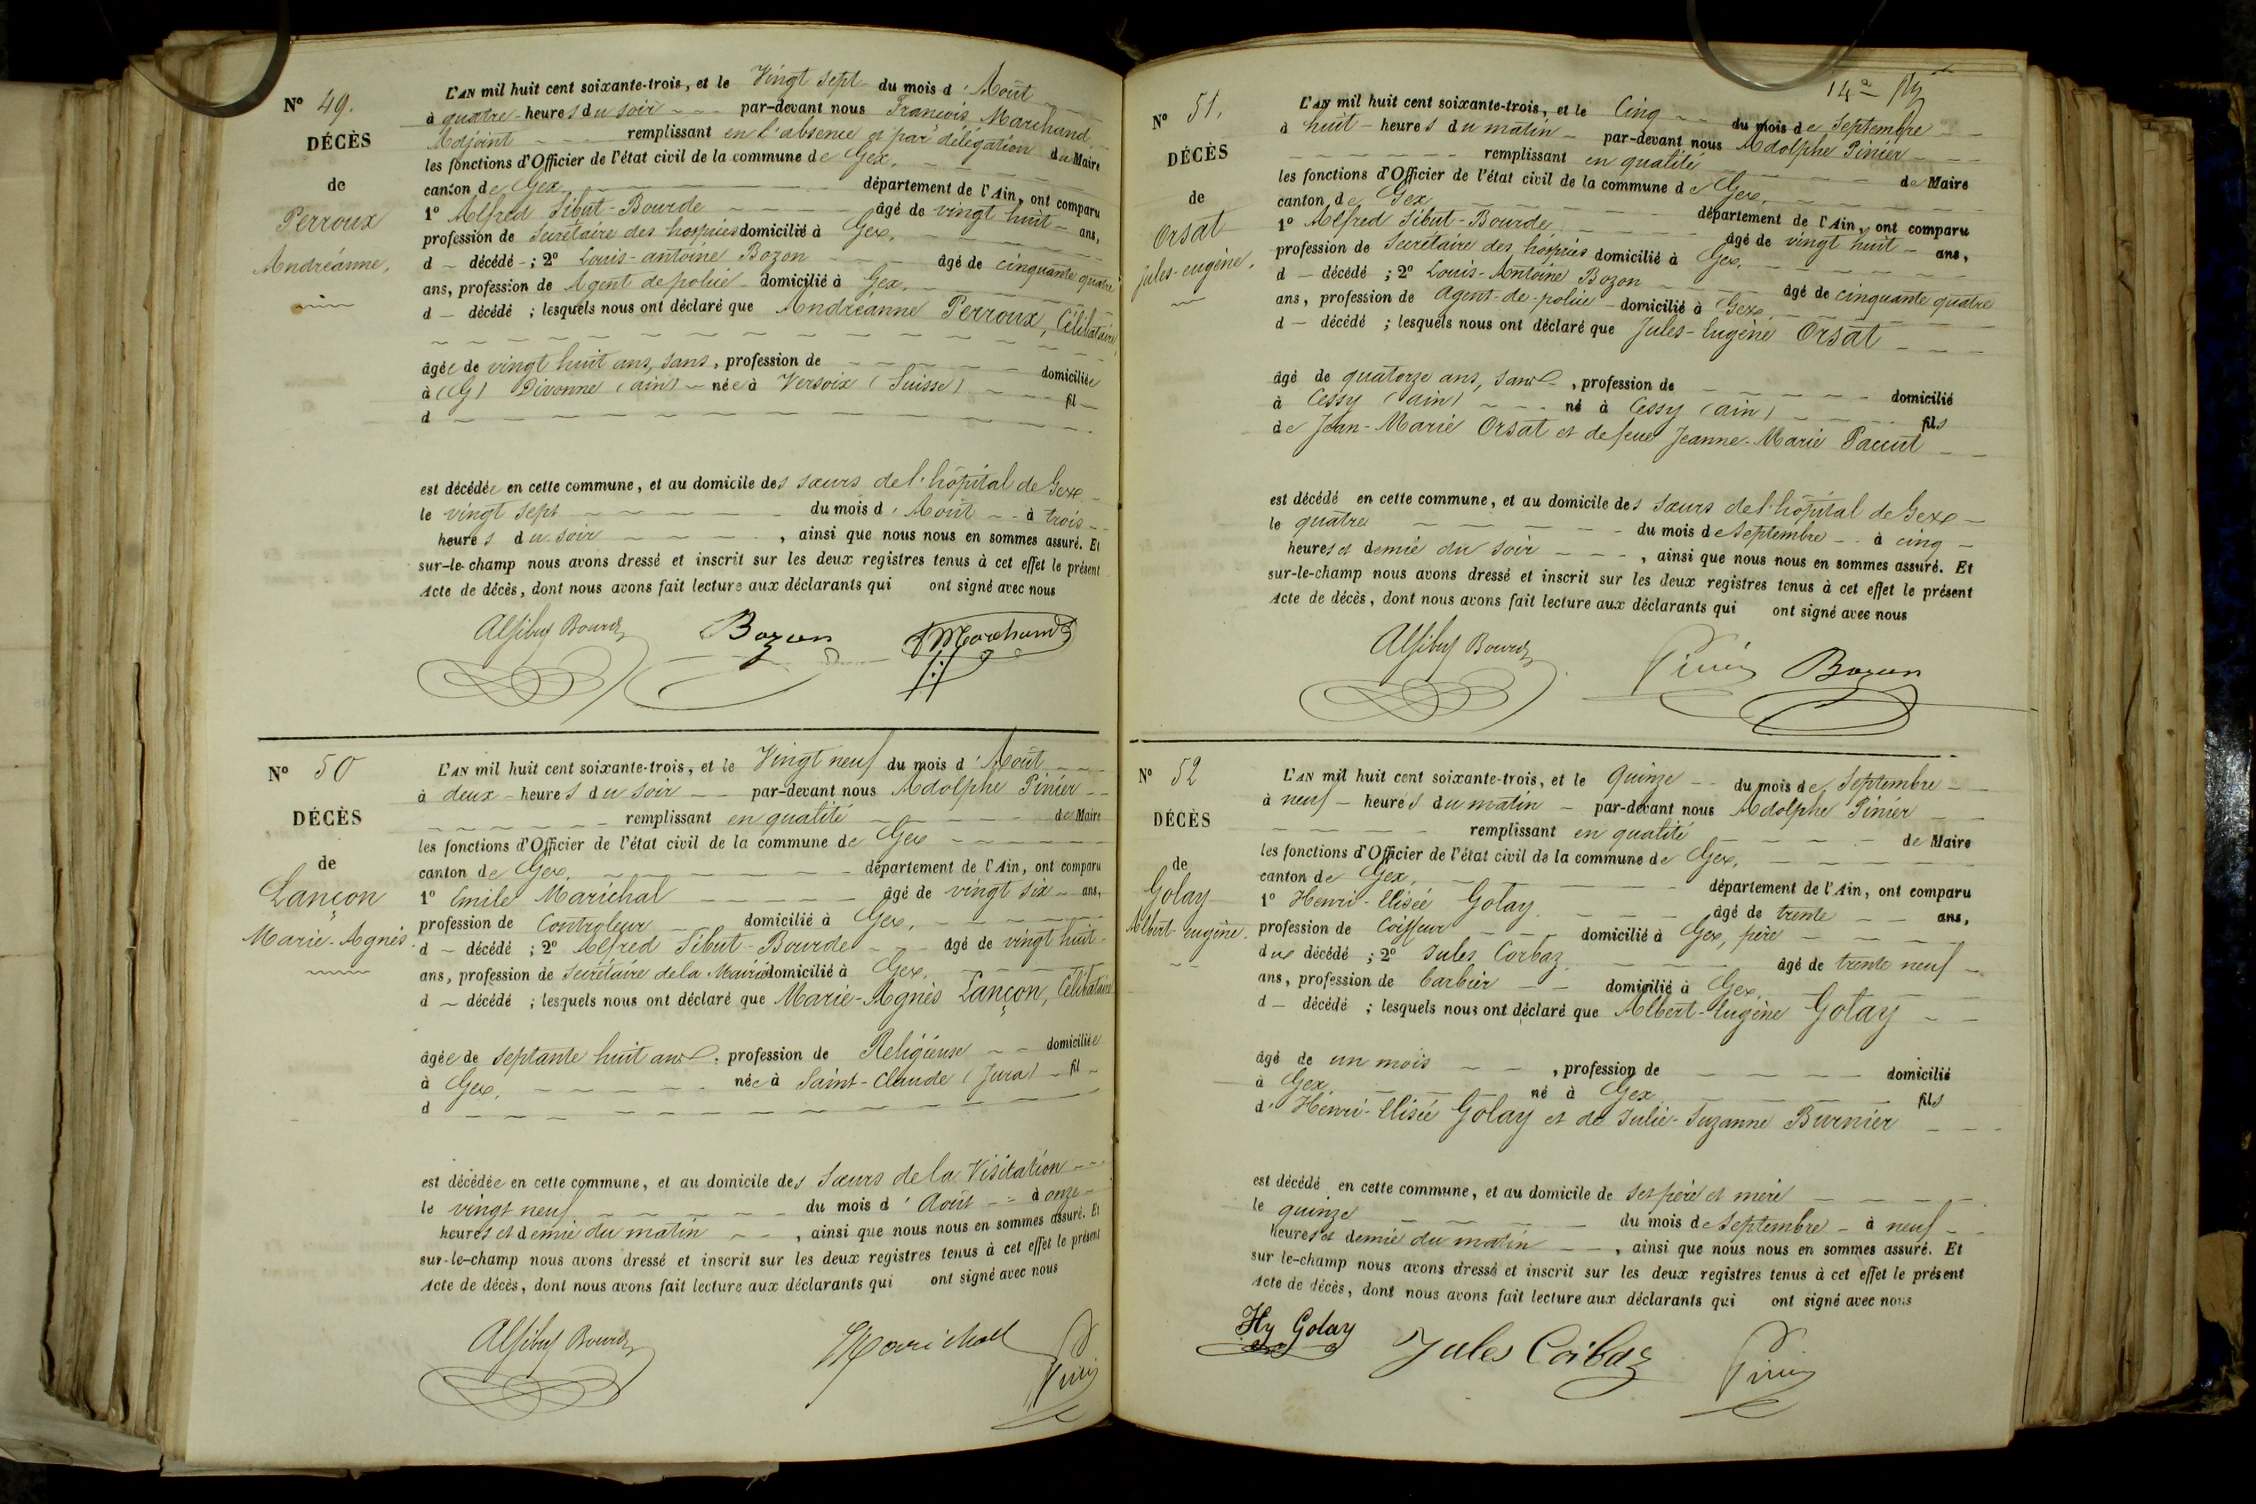 N° 49.
DÉCÈS
de
Perroux
Andréanne,
L'AN mil huit cent soixante-trois, et le Vingt sept du mois d'Août
à quatre heures du soir par-devant nous François Marchand
Adjoint remplissant en l'absence et par délégation du Maire
les fonctions d'Officier de l'état civil de la commune de Gex,
canton de Gex, département de l'Ain, ont comparu
1° Alfred Sibut-Bourde âgé de vingt huit ans,
profession de Secrétaire des hospices domicilié à Gex,
d décédé ; 2° Louis-antoine Bozon âgé de cinquante quatre
ans, profession de Agent de police domicilié à Gex,
d décédé ; lesquels nous ont déclaré que Andréanne Perroux, Célibataire,
âgée de vingt huit ans, sans, profession de domiciliée
à (G) Divonne (ain) née à Versoix (Suisse) fil
d
est décédée en cette commune, et au domicile des sœurs de l'hôpital de Gex
le vingt sept du mois d'Août à trois
heures du soir, ainsi que nous nous en sommes assuré. Et
sur-le-champ nous avons dressé et inscrit sur les deux registres tenus à cet effet le présent
Acte de décès, dont nous avons fait lecture aux déclarants qui ont signé avec nous
Alf Sibut Bourde Bozon Marchand
N° 50
DÉCÈS
de
Lançon
Marie-Agnès.
L'AN mil huit cent soixante-trois, et le Vingt neuf du mois d'Août
à deux heures du soir par-devant nous Adolphe Pinier
remplissant en qualité de Maire
les fonctions d'Officier de l'état civil de la commune de Gex
canton de Gex, département de l'Ain, ont comparu
1° Emile Maréchal âgé de vingt six ans,
profession de Controleur domicilié à Gex,
d décédé ; 2° Alfred Sibut-Bourde âgé de vingt huit
ans, profession de Secrétaire de la Mairie domicilié à Gex,
d décédé ; lesquels nous ont déclaré que Marie-Agnès Lançon, Célibataire
âgée de septante huit ans, profession de Religieuse domiciliée
à Gex, née à Saint-Claude (Jura) fil
d
est décédée en cette commune, et au domicile des Sœurs de la Visitation
le vingt neuf du mois d'Août à onze
heures et demie du matin, ainsi que nous nous en sommes assuré. Et
sur-le-champ nous avons dressé et inscrit sur les deux registres tenus à cet effet le présent
Acte de décès, dont nous avons fait lecture aux déclarants qui ont signé avec nous
Alf Sibut Bourde Marichal Pinier
14e
N° 51.
DÉCÈS
de
Orsat
jules-eugène.
L'AN mil huit cent soixante-trois, et le Cinq du mois de Septembre
à huit heures du matin par-devant nous Adolphe Pinier
remplissant en qualité de Maire
les fonctions d'Officier de l'état civil de la commune de Gex,
canton de Gex département de l'Ain, ont comparu
1° Alfred Sibut-Bourde, âgé de vingt huit ans,
profession de Secrétaire des hospices domicilié à Gex,
d décédé ; 2° Louis-Antoine Bozon âgé de cinquante quatre
ans, profession de agent-de-police domicilié à Gex,
d décédé ; lesquels nous ont déclaré que Jules-Eugène Orsat
âgé de quatorze ans, sans, profession de domicilié
à Cessy (ain) né à Cessy (ain) fils
de Jean-Marie Orsat et de feue Jeanne-Marie Paccut
est décédé en cette commune, et au domicile des sœurs de l'hôpital de Gex
le quatre du mois de Septembre à cinq
heures et demie du soir, ainsi que nous nous en sommes assuré. Et
sur-le-champ nous avons dressé et inscrit sur les deux registres tenus à cet effet le présent
Acte de décès, dont nous avons fait lecture aux déclarants qui ont signé avec nous
Alf Sibut Bourde Pinier Bozon
N° 52
DÉCÈS
de
Golay
Albert-eugène.
L'AN mil huit cent soixante-trois, et le Quinze du mois de Septembre
à neuf heures du matin par-devant nous Adolphe Pinier
remplissant en qualité de Maire
les fonctions d'Officier de l'état civil de la commune de Gex,
canton de Gex, département de l'Ain, ont comparu
1° Henri-Elisée Golay âgé de trente ans,
profession de Coiffeur domicilié à Gex, père
du décédé ; 2° Jules Corbaz âgé de trente neuf
ans, profession de barbier domicilié à Gex,
d décédé ; lesquels nous ont déclaré que Albert-Eugène Golay
âgé de un mois, profession de domicilié
à Gex né à Gex fils
d'Henri-Elisée Golay et de Julie-Suzanne Burnier
est décédé en cette commune, et au domicile de ses père et mère
le quinze du mois de Septembre à neuf
heures et demie du matin, ainsi que nous nous en sommes assuré. Et
sur le-champ nous avons dressé et inscrit sur les deux registres tenus à cet effet le présent
Acte de décès, dont nous avons fait lecture aux déclarants qui ont signé avec nous
Hy Golay Jules Corbaz Pinier